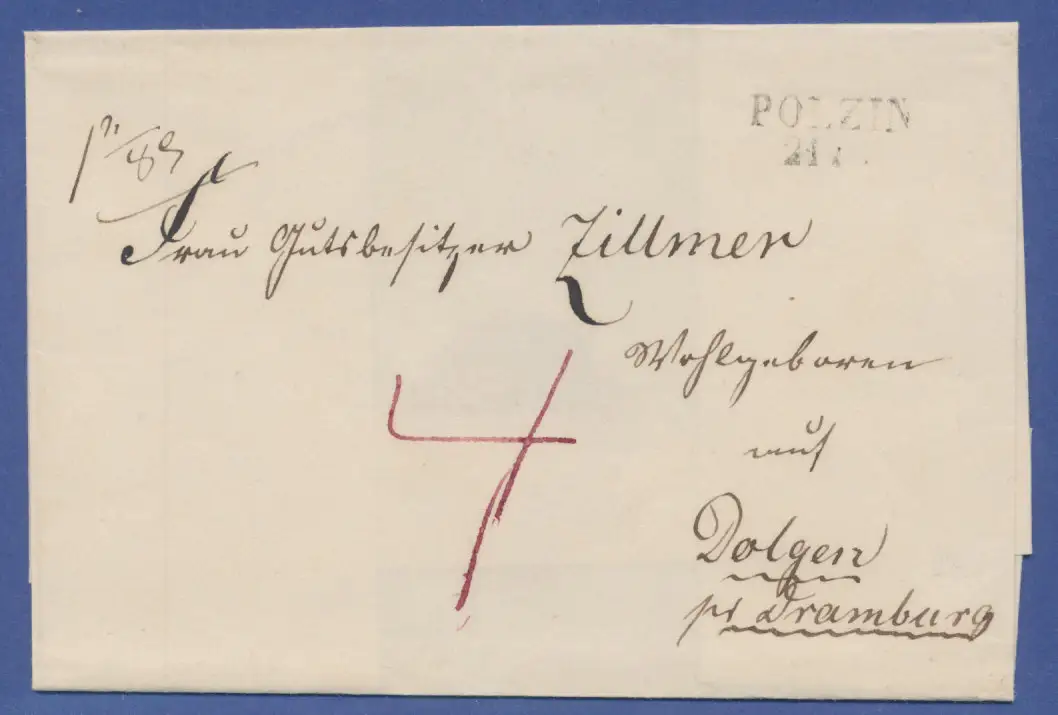 POLZIN
21
Frau Gutsbesitzer Zillmer
Wohlgeboren
auf
Dolgen
pr Dramburg
4